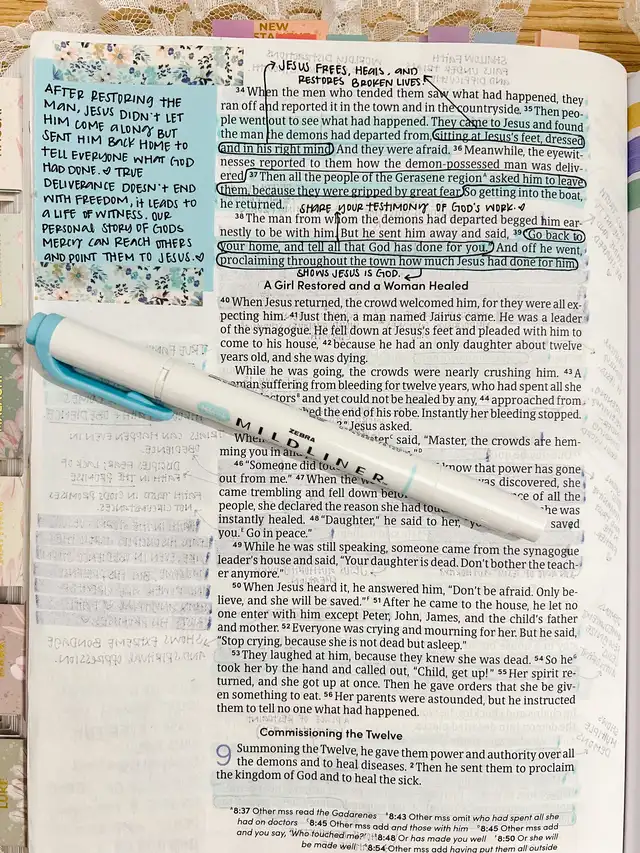 NEW
JESUS FREES, HEALS, AND
RESTORES BROKEN LIVES.
AFTER RESTORING THE
MAN, JESUS DIDN'T LET
HIM COME ALONG BUT
SENT HIM BACK HOME TO
TELL EVERYONE WHAT GOD
HAD DONE. TRUE
DELIVERANCE DOESN'T END
WITH FREEDOM, IT LEADS TO
A LIFE OF WITNESS. OUR
PERSONAL STORY OF GODS
MERCY CAN REACH OTHERS
AND POINT THEM TO JESUS.
34 When the men who tended them saw what had happened, they
ran off and reported it in the town and in the countryside. 35 Then peo-
ple went out to see what had happened. They came to Jesus and found
the man the demons had departed from, sitting at Jesus's feet, dressed
and in his right mind. And they were afraid. 36 Meanwhile, the eyewit-
nesses reported to them how the demon-possessed man was deliv-
ered. 37 Then all the people of the Gerasene region A asked him to leave
them, because they were gripped by great fear. So getting into the boat,
he returned.
SHARE YOUR TESTIMONY OF GOD'S WORK.
38 The man from whom the demons had departed begged him ear-
nestly to be with him. But he sent him away and said, 39 "Go back to
your home, and tell all that God has done for you." And off he went,
proclaiming throughout the town how much Jesus had done for him.
SHOWS JESUS IS GOD.
A Girl Restored and a Woman Healed
40 When Jesus returned, the crowd welcomed him, for they were all ex-
pecting him. 41 Just then, a man named Jairus came. He was a leader
of the synagogue. He fell down at Jesus's feet and pleaded with him to
come to his house, 42 because he had an only daughter about twelve
years old, and she was dying.
While he was going, the crowds were nearly crushing him. 43 A
woman suffering from bleeding for twelve years, who had spent all she
doctors B and yet could not be healed by any, 44 approached from
the end of his robe. Instantly her bleeding stopped.
?" Jesus asked.
When said, "Master, the crowds are hem-
ming you in and
46 "Someone did know that power has gone
out from me." 47 When the was discovered, she
came trembling and fell down of all the
people, she declared the reason she had she was
instantly healed. 48 "Daughter," he said to her, saved
you. Go in peace."
49 While he was still speaking, someone came from the synagogue
leader's house and said, "Your daughter is dead. Don't bother the teach-
er anymore."
50 When Jesus heard it, he answered him, "Don't be afraid. Only be-
lieve, and she will be saved." 51 After he came to the house, he let no
one enter with him except Peter, John, James, and the child's father
and mother. 52 Everyone was crying and mourning for her. But he said,
"Stop crying, because she is not dead but asleep."
53 They laughed at him, because they knew she was dead. 54 So he
took her by the hand and called out, "Child, get up!" 55 Her spirit re-
turned, and she got up at once. Then he gave orders that she be giv-
en something to eat. 56 Her parents were astounded, but he instructed
them to tell no one what had happened.
Commissioning the Twelve
9 Summoning the Twelve, he gave them power and authority over all
the demons and to heal diseases. 2 Then he sent them to proclaim
the kingdom of God and to heal the sick.
8:37 Other mss read the Gadarenes 8:43 Other mss omit who had spent all she
had on doctors 8:45 Other mss add and those with him 8:45 Other mss add
and you say, 'Who touched me?' 8:48 Or has made you well 8:50 Or she will
be made well 8:54 Other mss add having put them all outside
ZEBRA
MILDLINER
LUKE